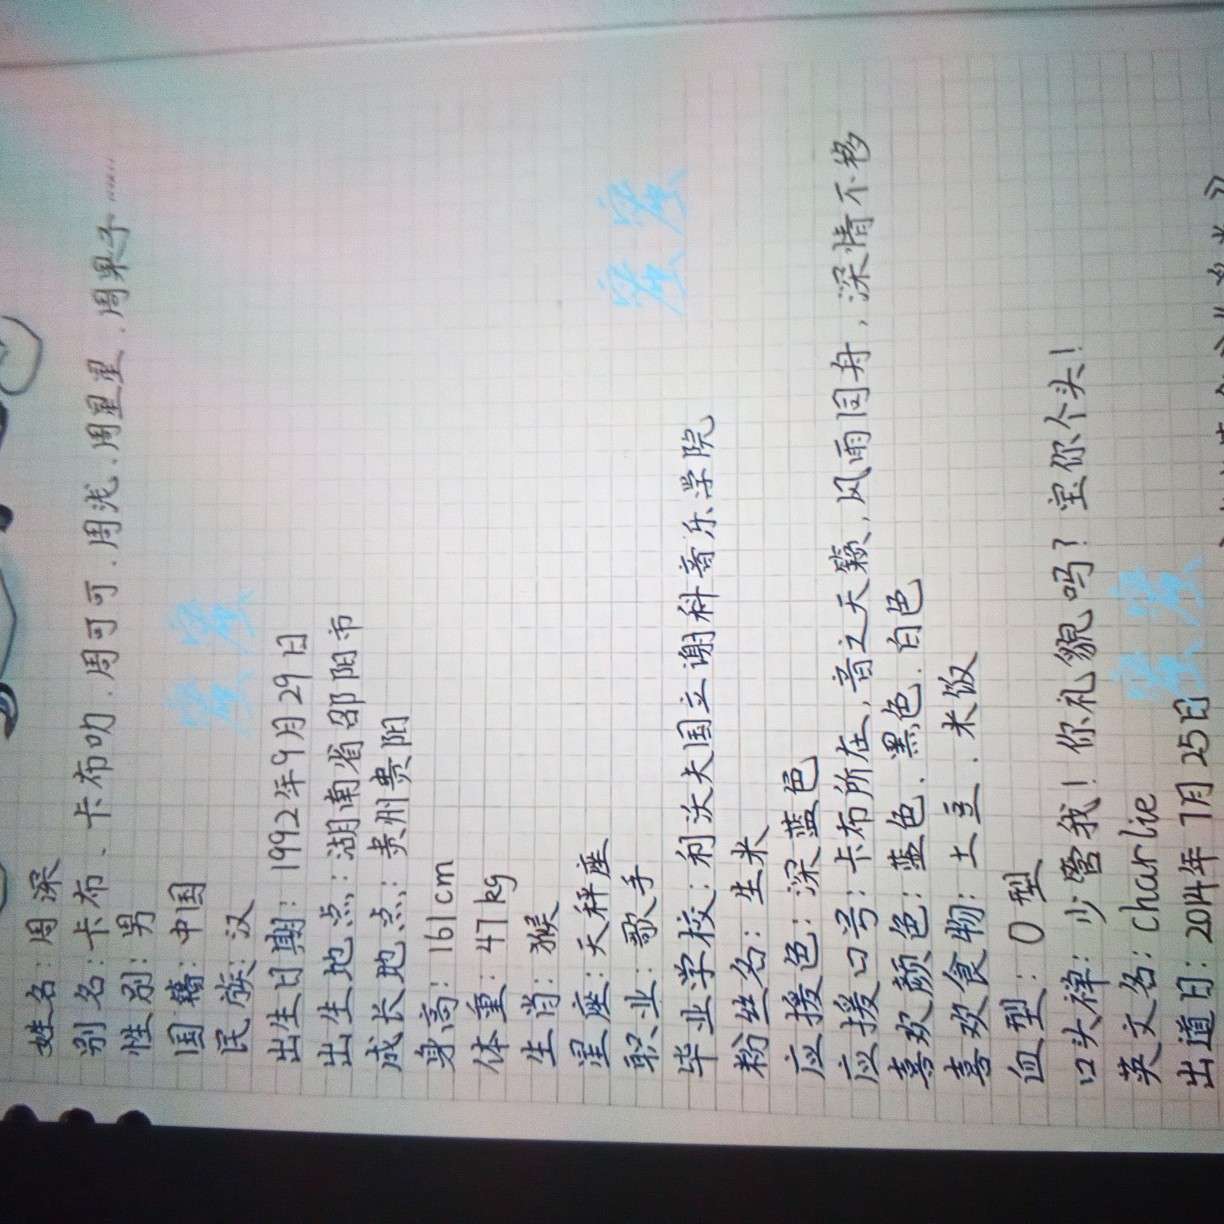 姓名：周深
别名：卡布、卡布叻、周可可、周浅、周星星、周果子……
性别：男
国籍：中国
民族：汉
出生日期：1992年9月29日
出生地点：湖南省邵阳市
成长地点：贵州贵阳
身高：161cm
体重：47kg
生肖：猴
星座：天秤座
职业：歌手
毕业学校：利沃夫国立谢科音乐学院
粉丝名：生米
应援色：深蓝色
应援口号：卡布所在，音之天籁，风雨同舟，深情不移
喜欢颜色：蓝色、黑色、白色
喜欢食物：土豆、米饭
血型：O型
口头禅：少管我！你礼貌吗？宝你个头！
英文名：Charlie
出道日：2014年7月25日